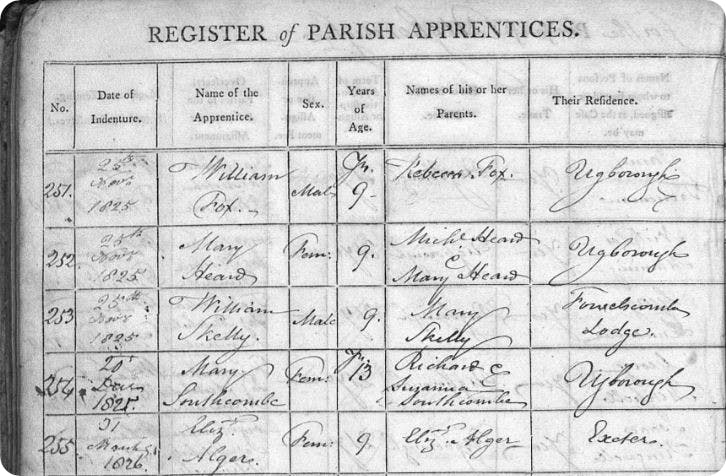 REGISTER of PARISH APPRENTICES.
No. Date of Indenture. Name of the Apprentice. Sex. Years of Age. Names of his or her Parents. Their Residence.
251. 25th Novr 1825 William Fox. Male Yrs. 9. Rebecca Fox. Ugborough
252. 25th Novr 1825 Mary Heard Fem: 9. Michl Heard & Mary Heard Ugborough
253 25th Novr 1825 William Skelly. Male 9. Mary Skelly Fowelscombe Lodge.
254 1825. Mary Southcombe Fem: Yrs. 13 Richard & Susanna Southcombe Ugborough
255 31 March 1826. Elizth Alger. Fem: 9. Elizth Alger Exeter.